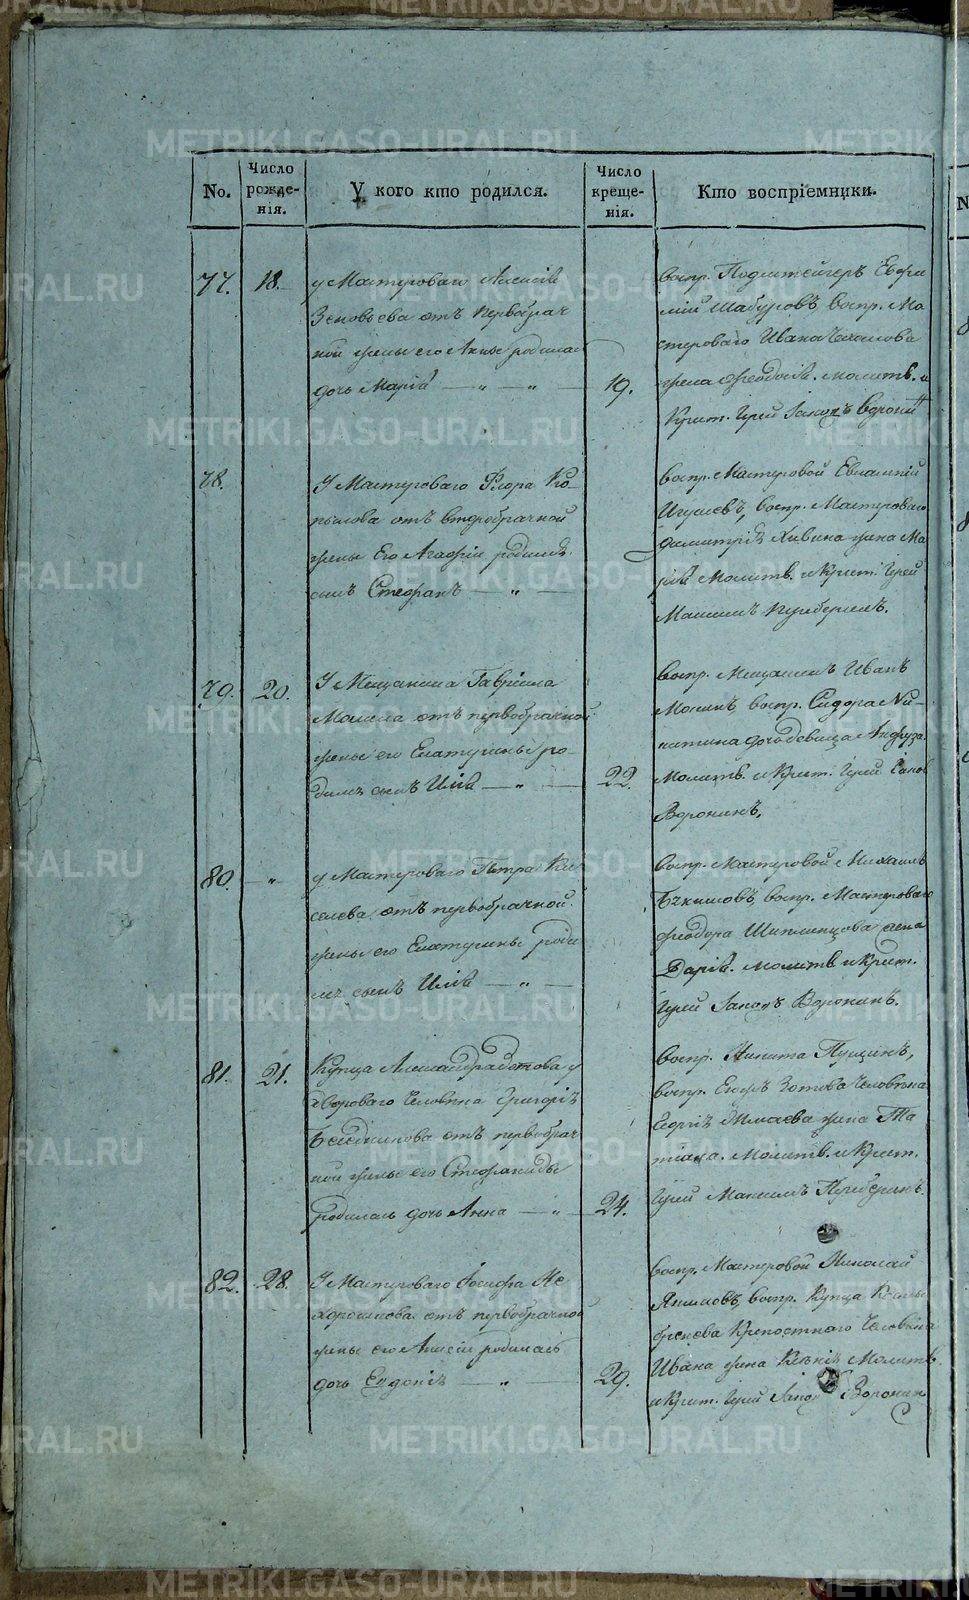 No.
Число рожденія.
У кого кто родился.
Число крещенія.
Кто воспріемники.
77.
18.
у Мастероваго Алексія
Зеновьева отъ первобрач
ной жены его Анны родилась
дочь Марія — „ — „ —
19.
воспр. Подштейгеръ Евфи
мій Шабуровъ, воспр. Ма
стероваго Ивана
жена Феодосія. молитв. и
крест. Іерей Іаковъ Воронин
78.
У Мастероваго Флора Ко
пылова отъ второбрачной
жены Его Агафіи родился
сынъ Стефанъ — „ —
воспр. Мастеровой Евлампій
воспр. Мастероваго
Димитрія жена Ма
рія Молитв. и крест. Іерей
Максимъ
79.
20.
У Мещанина Гавріила
Мокина отъ первобрачной
жены его Екатерины ро
дился сынъ Илія — „ —
22.
воспр. Мещанинъ Иванъ
Мокинъ, воспр. Сидора Ни
китина дочь девица
Молитв. и крест. Іерей Іаков
Воронинъ,
80.
— „
у Мастероваго Петра Ки
селева, отъ первобрачной
жены его Екатерины роди
лся сынъ Илія — „ —
воспр. Мастеровой Михаилъ
воспр. Мастероваго
Феодора Шиплинцова жена
Дарія. молитв и крест.
Іерей Іаковъ Воронинъ.
81.
21.
Купца Александра Зотова у
двороваго Человека Григорія
отъ первобрач
ной жены его Стефаниды
родилась дочь Анна — „ —
24.
воспр. Никита Пущинъ,
воспр. Егора Зотова Человека
Георгія жена Та
тіана. Молитв. и крест.
Іерей Максимъ
82.
28.
У Мастероваго Іосифа Не
хорошкова отъ первобрачной
жены его Анисіи родилась
дочь Евдокія — „ —
29.
воспр. Мастеровой Николай
Якимовъ, воспр. Купца
Крепостнаго Человека
Ивана жена Ксенія Молитв.
и крест. Іерей Іаков Воронин
METRIKI.GASO-URAL.RU